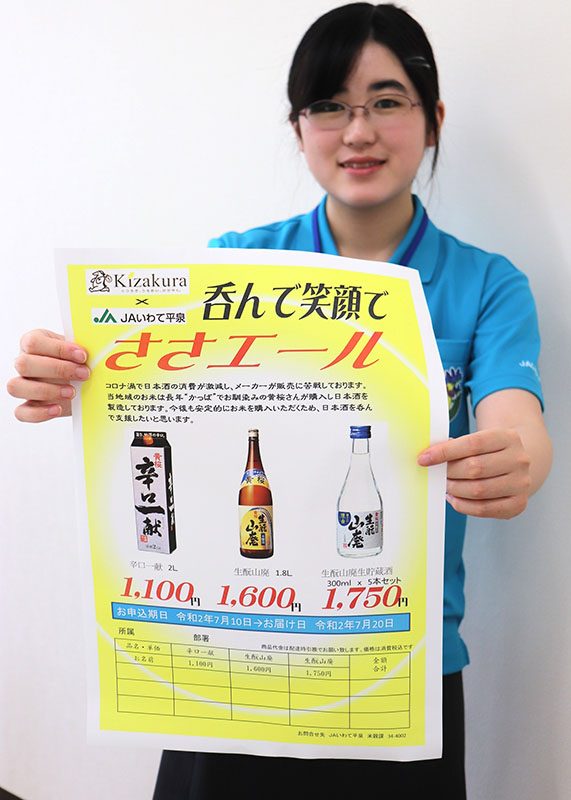 Kizakura
×
JAいわて平泉
呑んで笑顔で
ささエール
コロナ渦で日本酒の消費が激減し、メーカーが販売に苦戦しております。
当地域のお米は長年“かっぱ”でお馴染みの黄桜さんが購入し日本酒を
製造しております。今後も安定的にお米を購入いただくため、日本酒を呑ん
で支援したいと思います。
黄桜
辛口一献
生酛
山廃
生酛
山廃
辛口一献 2L
生酛山廃 1.8L
生酛山廃生貯蔵酒
300ml x 5本セット
1,100円
1,600円
1,750円
お申込期日 令和2年7月10日→お届け日 令和2年7月20日
所属 部署
商品代金は配達時引換でお願い致します。価格は消費税込です
品名・単価 辛口一献 生酛山廃 生酛山廃 金額
お名前 1,100円 1,600円 1,750円 合計
お問合せ先 JAいわて平泉 米穀課 34-4002